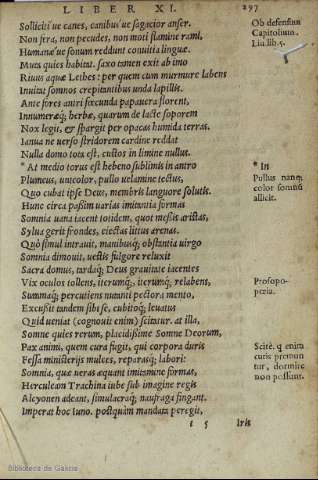 LIBER XI. 297
Solliciti ue canes, canibus ue sagacior anser.
Non fera, non pecudes, non moti flamine rami,
Humanæ ue sonum reddunt conuitia linguæ.
Muta quies habitat. saxo tamen exit ab imo
Riuus aquæ Lethes: per quem cum murmure labens
Inuitat somnos crepitantibus unda lapillis.
Ante fores antri fœcunda papauera florent,
Innumeræq; herbæ, quarum de lacte soporem
Nox legit, & spargit per opacas humida terras.
Ianua ne uerso stridorem cardine reddat
Nulla domo tota est, custos in limine nullus.
* At medio torus est hebeno sublimis in antro
Plumeus, unicolor, pullo uelamine tectus,
Quo cubat ipse Deus, membris languore solutis.
Hunc circa passim uarias imitantia formas
Somnia uana iacent totidem, quot messis aristas,
Sylua gerit frondes, eiectas littus arenas.
Quò simul intrauit, manibusq; obstantia uirgo
Somnia dimouit, uestis fulgore reluxit
Sacra domus, tardaq; Deus grauitate iacentes
Vix oculos tollens, iterumq;, iterumq; relabens,
Summaq; percutiens nutanti pectora mento,
Excussit tandem sibi se, cubitoq; leuatus
Quid ueniat (cognouit enim) scitatur. at illa,
Somne quies rerum, placidissime Somne Deorum,
Pax animi, quem cura fugit, qui corpora duris
Fessa ministerijs mulces, reparasq; labori:
Somnia, quæ ueras æquant imitamine formas,
Herculeam Trachina iube sub imagine regis
Alcyonen adeant, simulacraq; naufraga fingant.
Imperat hoc Iuno. postquàm mandata peregit,
t 5 Iris
Ob defensum
Capitolium.
Liu.lib.5.
* In
Pullus nanq;
color somnũ
allicit.
Prosopo-
pœia.
Scitè. q enim
curis premun
tur, dormire
non possunt.
Biblioteca de Galicia